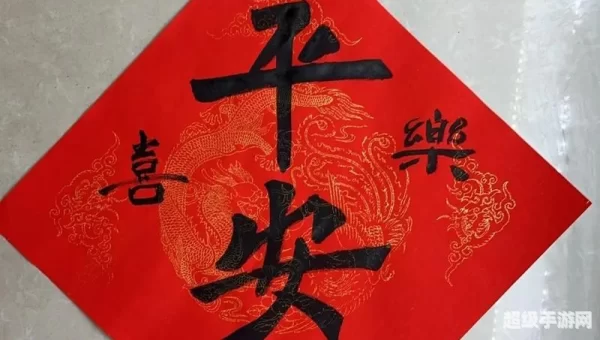 平安
喜樂
超级手游网